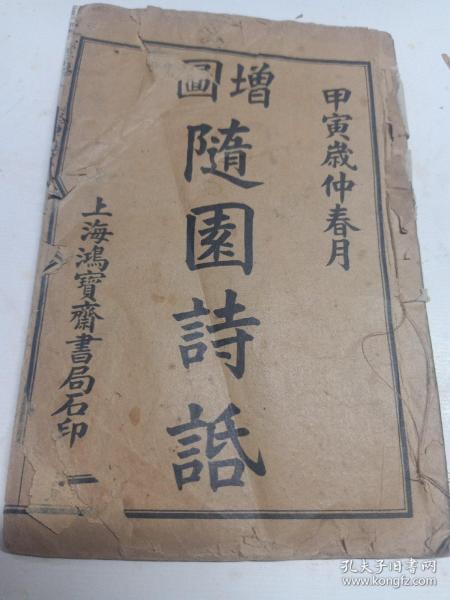 甲寅歲仲春月
增圖
隨園詩話
上海鴻寶齋書局石印
一
孔夫子旧书网
http://www.kongfz.com